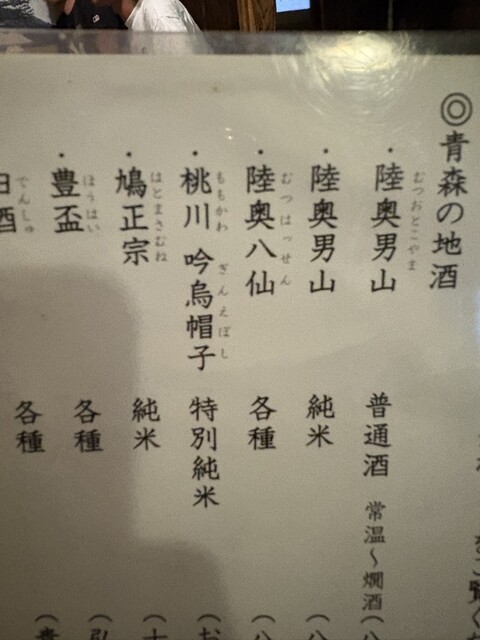 ◎青森の地酒
むつおとこやま
・陸奥男山 普通酒 常温〜燗酒（八
・陸奥男山 純米（八
むつはっせん
・陸奥八仙 各種（八
ももかわ ぎんえぼし
・桃川 吟烏帽子 特別純米（お
はとまさむね
・鳩正宗 純米（十
ほうはい
・豊盃 各種（弘
でんしゅ
田酒 各種（青